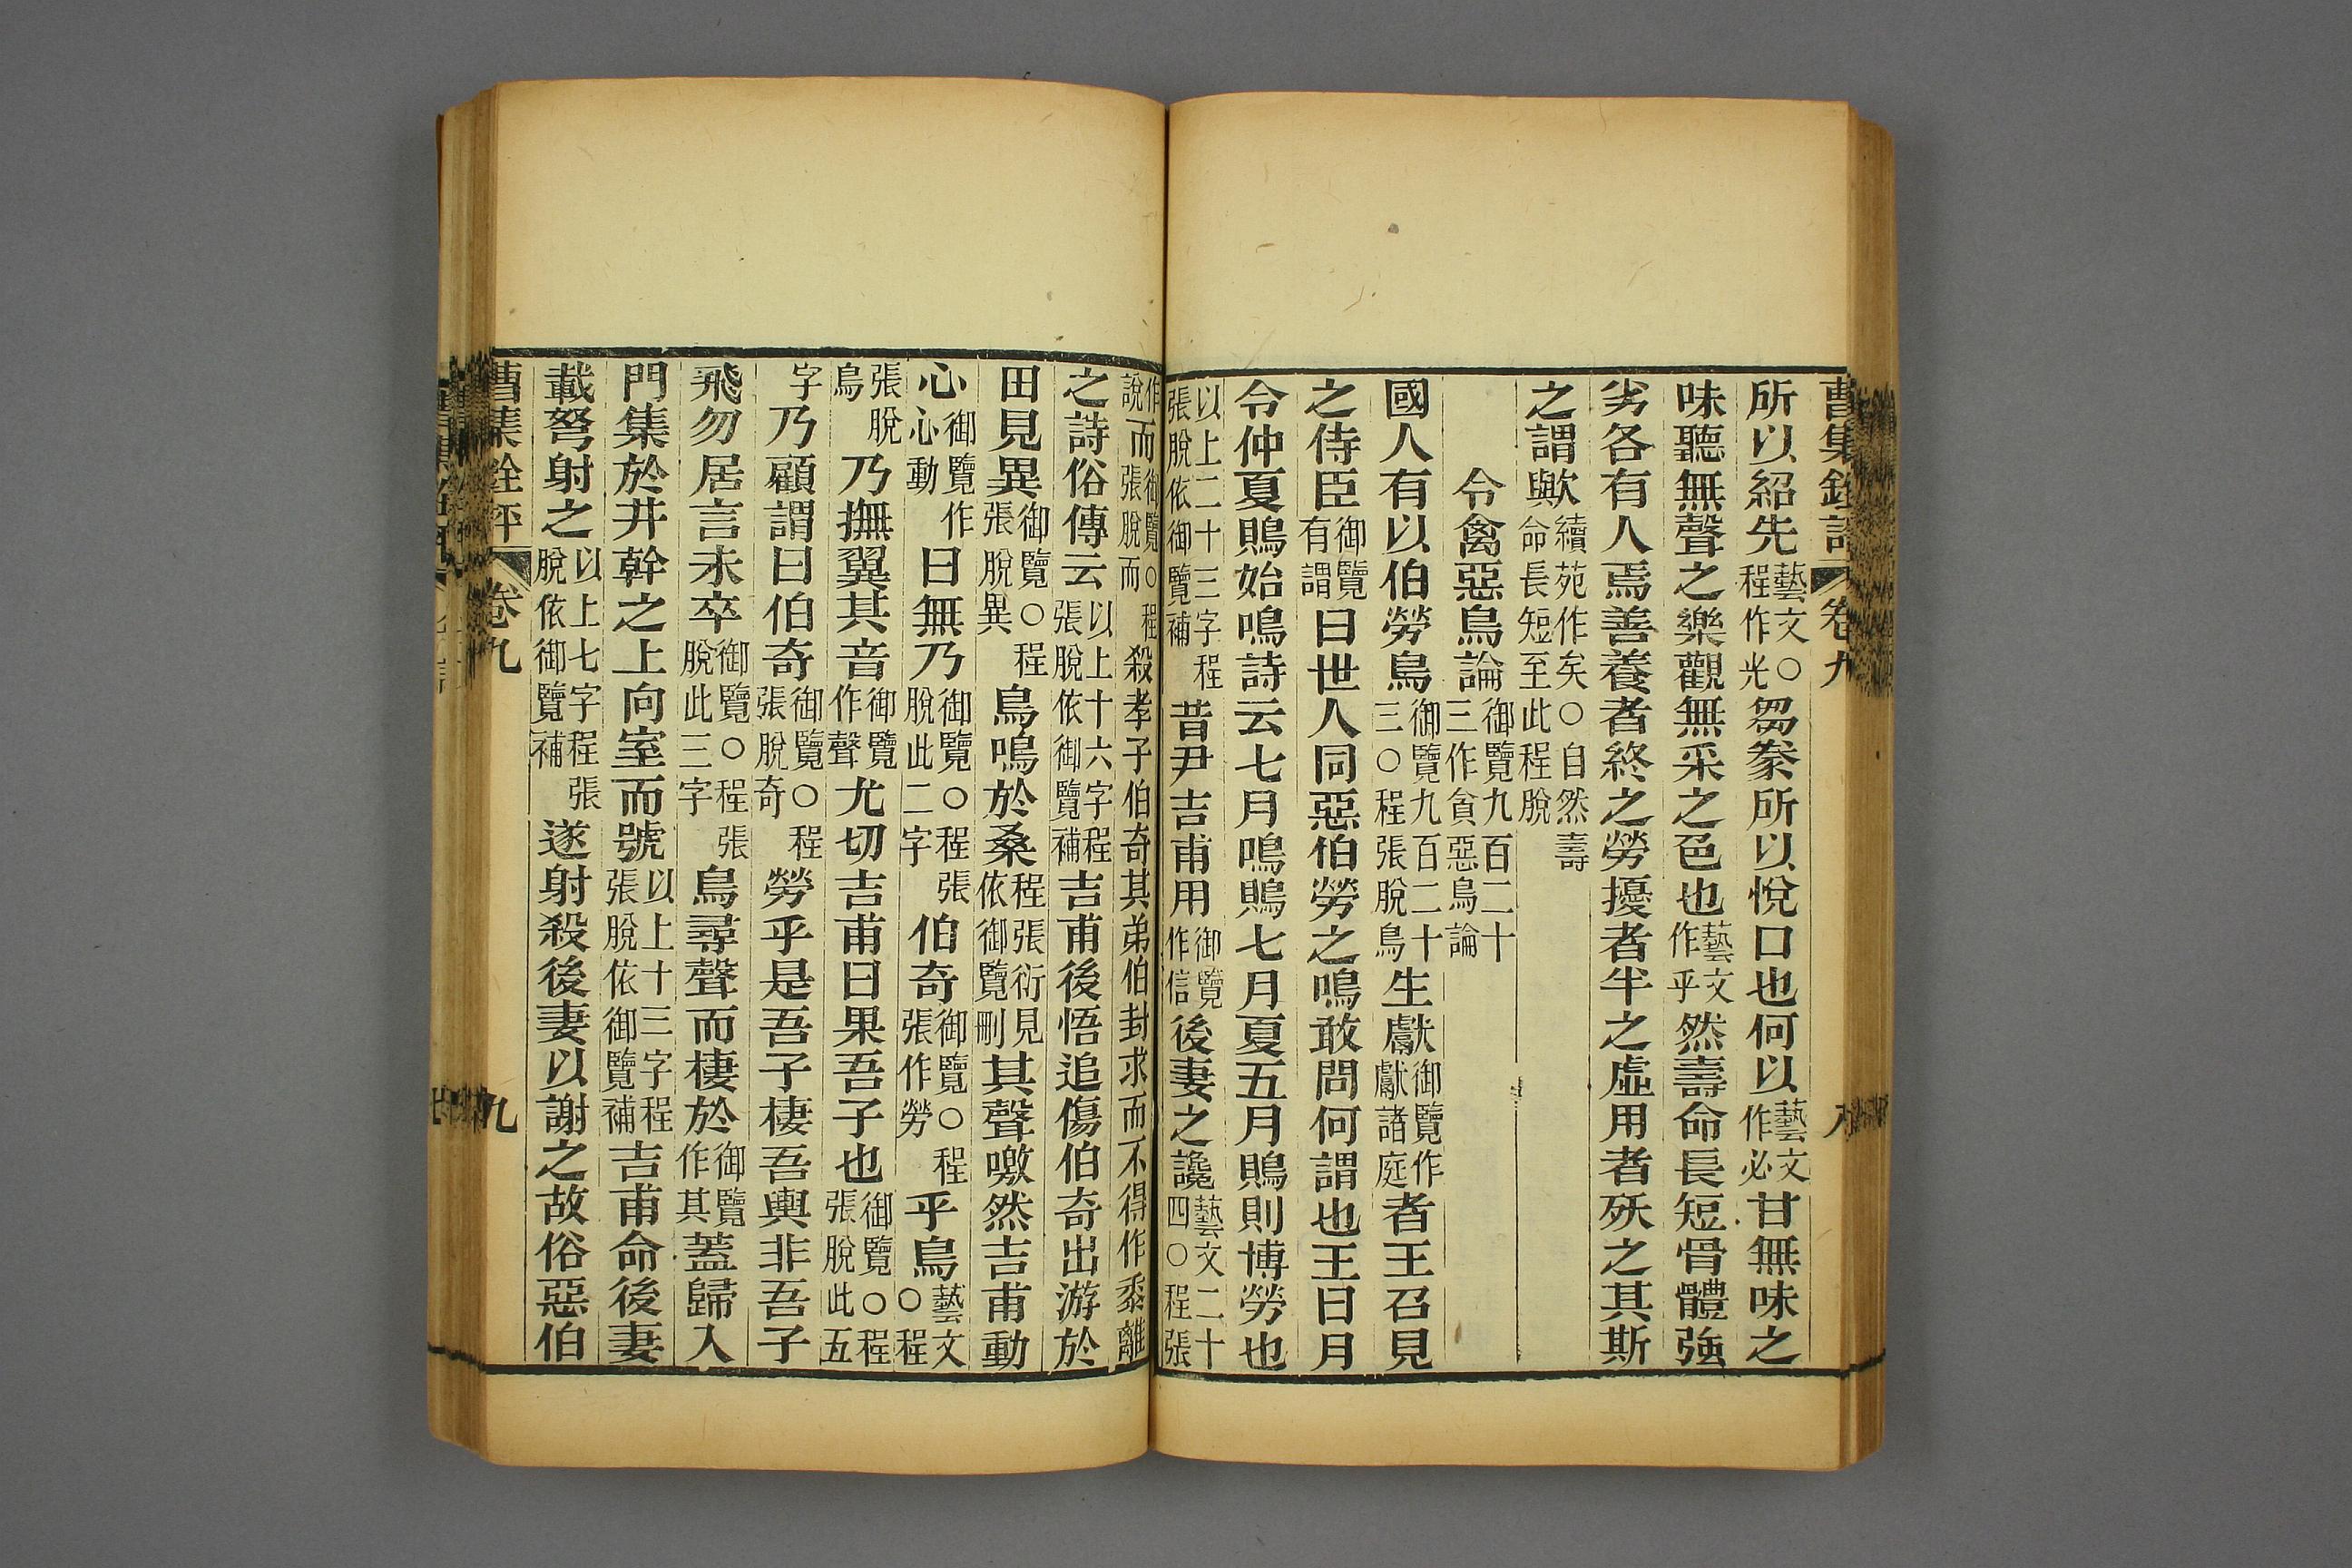 曹集銓評 卷九 八
所以紹先藝文○程作光芻豢所以悅口也何以藝文作必甘無味之
味聽無聲之樂觀無采之色也藝文作乎然壽命長短骨體強
劣各有人焉善養者終之勞擾者半之虛用者殀之其斯
之謂歟續苑作矣○自然壽命長短至此程脫
令禽惡鳥論御覽九百二十三作貪惡鳥論
國人有以伯勞鳥御覽九百二十三○程張脫鳥生獻御覽作獻諸庭者王召見
之侍臣御覽有謂曰世人同惡伯勞之鳴敢問何謂也王曰月
令仲夏鵙始鳴詩云七月鳴鵙七月夏五月鵙則博勞也
以上二十三字程張脫依御覽補昔尹吉甫用御覽作信後妻之讒藝文二十四○程張
作說而御覽○程張脫而殺孝子伯奇其弟伯封求而不得作黍離
之詩俗傳云以上十六字程張脫依御覽補吉甫後悟追傷伯奇出游於
田見異御覽○程張脫異鳥鳴於桑程張衍見依御覽刪其聲噭然吉甫動
心御覽作心動曰無乃御覽○程張脫此二字伯奇御覽○程張作勞乎鳥藝文○程
張脫鳥乃撫翼其音御覽作聲尤切吉甫曰果吾子也御覽○程張脫此五
字乃顧謂曰伯奇御覽○程張脫奇勞乎是吾子棲吾輿非吾子
飛勿居言未卒御覽○程張脫此三字鳥尋聲而棲於御覽作其蓋歸入
門集於井幹之上向室而號以上十三字程張脫依御覽補吉甫命後妻
載弩射之以上七字程張脫依御覽補遂射殺後妻以謝之故俗惡伯
曹集銓評 卷九 九